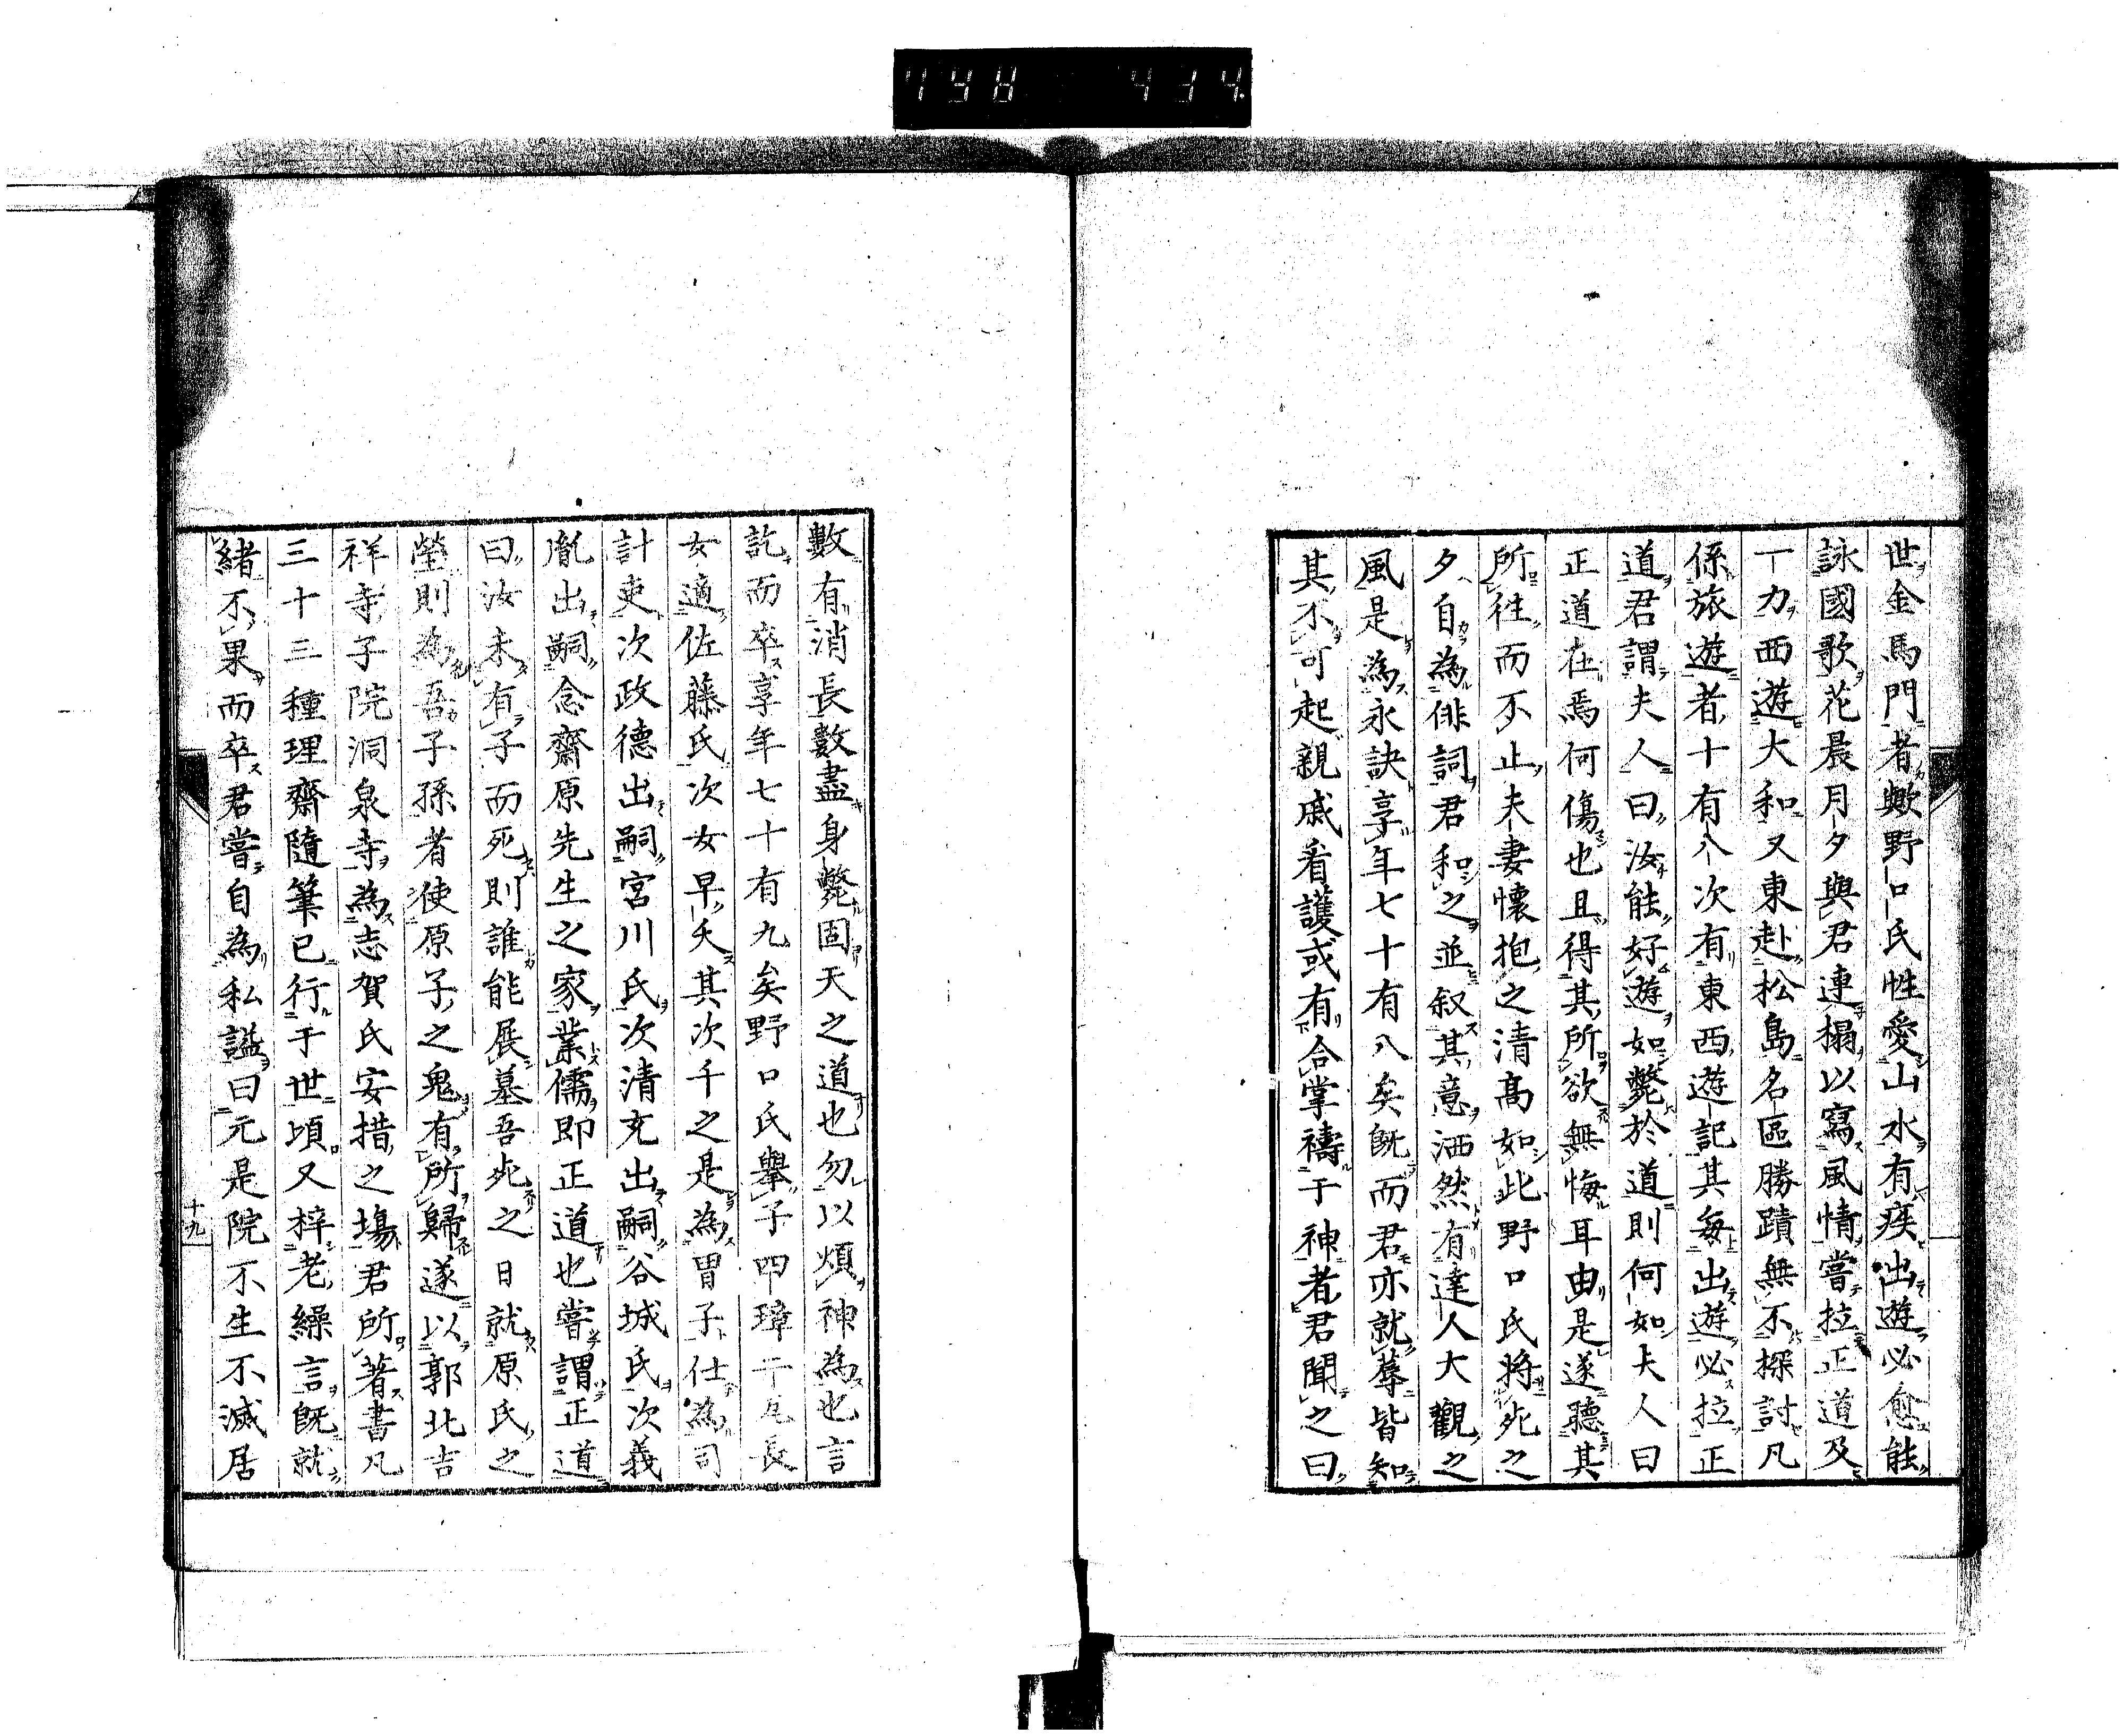 世金馬門者歟野口氏性愛山水有疾出遊必愈能
詠國歌花晨月夕與君連榻以寫風情嘗拉正道及
一力西遊大和又東赴松島名區勝蹟無不探討凡
係旅遊者十有八次有東西遊記其每出遊必拉正
道君謂夫人曰汝能好遊如斃於道則何如夫人曰
正道在焉何傷也且得其所欲無悔耳由是遂聽其
所往而不止夫妻懷抱之清高如此野口氏將死之
夕自為俳詞君和之並叙其意洒然有達人大觀之
風是為永訣享年七十有八矣既而君亦就蓐皆知
其不可起親戚看護或有合掌禱于神者君聞之曰
數有消長數盡身斃固天之道也勿以煩神為也言
訖而卒享年七十有九矣野口氏擧子四璋二瓦長
女適佐藤氏次女早夭其次千之是為冑子仕為司
計吏次政德出嗣宮川氏次清充出嗣谷城氏次義
胤出嗣念齋原先生之家業儒即正道也嘗謂正道
曰汝未有子而死則誰能展墓吾死之日就原氏之
塋則為吾子孫者使原子之鬼有所歸遂以郭北吉
祥寺子院洞泉寺為志賀氏安措之塲君所著書凡
三十三種理齋隨筆已行于世頃又梓老繰言既就
緒不果而卒君嘗自為私謚曰元是院不生不滅居
十九